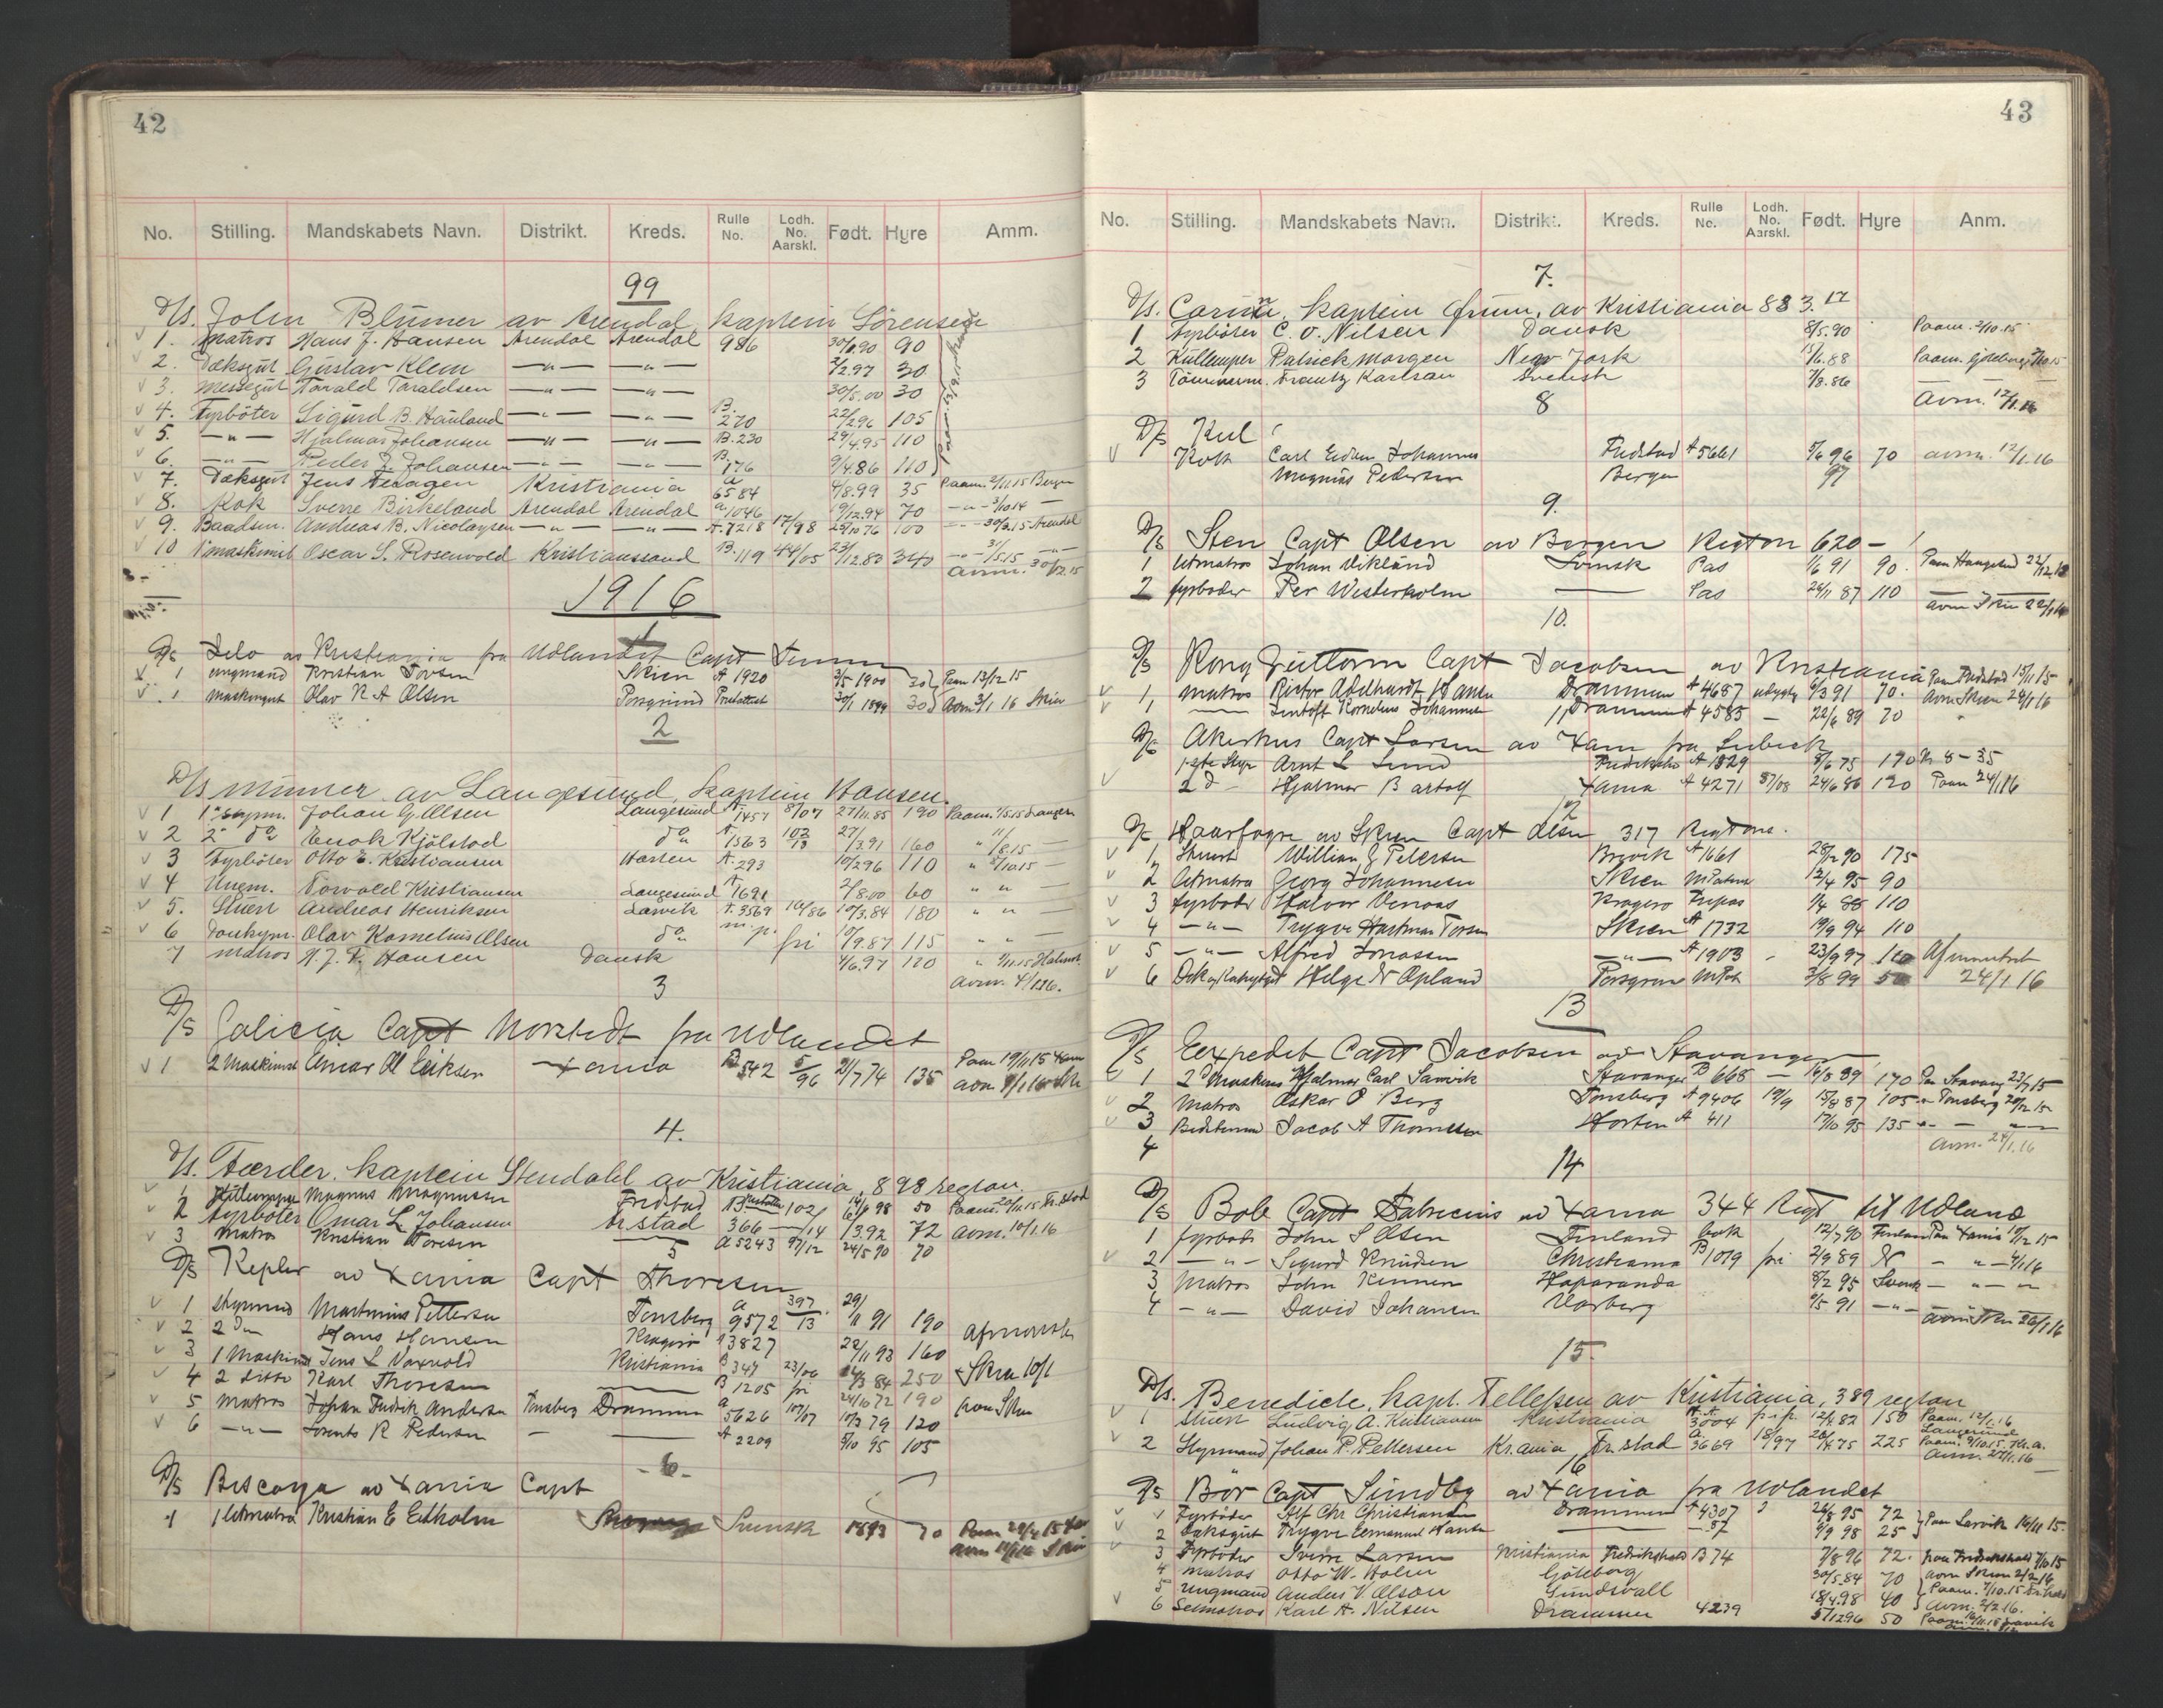 42
No. Stilling. Mandskabets Navn. Distrikt. Kreds. Rulle No. Lodh. No. Aarskl. Født. Hyre Amm.
99
D/S. John Blümer av Arendal, kaptein Sörensen
1. Matros Hans J. Hansen Arendal Arendal 986 90
2. Dæksgut Gustav Klem —"— —"— 2/2.97 30
3. Messegut Tarald Taraldsen —"— —"— 30/5.00 30
4. Fyrböter Sigurd B. Hauland —"— —"— B. 270 22/2 96 105
5. —"— Hjalmar Johansen —"— —"— B. 230 29/4.95 110
6. —"— Peder J. Johansen —"— —"— B. 176 9/4.86 110
7. Dæksgut Jens Kristiania a 6584 4/8.99 35 Paam. 2/11.15 Bergen
8. Kok Sverre Birkeland Arendal Arendal a 1046 19/12.94 70 —"— 3/10 14 —
9. Baadsm. Andreas B. Nicolaysen —"— —"— A. 7218 17/98 25/10 76 100 —"— 30/3.15 Arendal
10 1' maskinist Oscar S. Rosenvold Kristianssand B. 119 44/05 23/12.80 340 —"— 31/5.15 —"—
avm. 30/12.15
1916
1
D/S Oslo av Kristiania fra Udlandet Capt
1 ungmand Kristian Tovsen Skien A 1920 3/5 1900 30 Paam 13/12 15
1 Maskingut Olav N A Olsen Porsgrund 30/1 1899 30 Avm 3/1 16 Skien
2
D/S Minner av Langesund, kaptein Hansen.
1 1' styrm. Johan G. Olsen Langesund A. 1457 8/07 27/11.85 190 Paam. 1/5.15 Langesn
2 2' do Enok Kjölstad do A 1563 102/13 27/3.91 160 " 11/8.15 —
3 Fyrböter Otto E. Kristiansen Horten A. 293 10/2.96 110 " 8/10.15 —
4 Ungm. Torvald Kristiansen Langesund A 1691 2/8.00 60 " " —
5. Stuert Andreas Henriksen Larvik A. 3569 16/86 10/3.84 180 " " —
6 Donkym. Olav Kornelius Olsen do m.p. fri 10/9.87 115 " " —
7 Matros N. J. F. Hansen Dansk 4/6.97 120 " 9/11.15
avm. 4/1 16.
3
D/S Galicia Capt Norstedt fra Udlandet
1 2 Maskinist Einar Ol Eriksen Xania B 542 5/96 2/7 74 135 Paam 19/11 15 Xania
avm 9/1 16
4.
D/S. Færder. kaptein Stendahl av Kristiania, 898 regton.
1 Kullemper Magnus Magnussen Fredstad 14/6 98 50 Paam. 20/11.15 Fr.stad
2 Fyrböter Omar L Johansen Fr stad 366 102/14 1392 72 avm. 10/1.16
3 Matros Kristian Toresen a 5243 97/12 24/5 90 70
5
D/S Kepler av Xania Capt Thoresen
1 Styrmand Martinius Pettersen Tønsberg a 9572 397/13 29/11 91 190 Afmønstr
2 2 Do Hans Hansen Kragerø A 3827 22/11 93 160
3 1 Maskinist Jens L Voxvold Kristiania B 347 23/06 24/3 84 250 Skien 10/1
4 2 ditto Karl Thoresen B 1205 fri 24/10 72 190 fra Skien
5 Matros Johan Fredrik Andersen Tønsberg Drammen a 5626 107/07 10/3 79 120
6 —"— Lorents R Pedersen — A 2209 5/10 95 105
-6-
D/S Biscaya av Xania Capt
1 letmatro Kristian E Edholm Svensk 1893 70
43
No. Stilling. Mandskabets Navn. Distrikt. Kreds. Rulle No. Lodh. No. Aarskl. Født. Hyre Anm.
7.
D/S. Carin, kaptein Grum, av Kristiania 883.17
1 Fyrböter C. O. Nilsen Dansk 8/5.90 Paam. 2/10.15
2 Kullemper Patrick Morgen New York 15/6.88 Paam. Göteborg
3 Tömmerm. Frantz Karlsson Svensk 7/8.86 Avm. 12/1.16
8
D/S Kul
Kok Carl Johannes Fredstad A 5661 5/6 96 70 avm. 12/1.16
Magnus Pedersen Bergen 97
9.
D/S Sten Capt Olsen av Bergen Regton 620 —
1 letmatros Johan Viklund Svensk Pas 1/6 91 90.
2 Fyrbøder Per Westerholm — Pas 24/11 87 110 avm Skien 22/1 16
10.
D/S Kong Guttorm Capt Jacobsen av Kristiania Paam Fredstad 15/11 15
1, Matros Victor Adelhardt Hansen Drammen A 4687 udygtig 6/3 91 70. Avm Skien 24/1 16
1 — Kornelius Johannesen Drammen A 4585 — 22/6 89 70 "
11
D/S Akershus Capt Larsen av Xania fra Lübeck
1ste Styr Arnt L Lund Fredriksha A 1829 8/6 75 170 N 8-35
2 d — Hjalmar Bartolf Xania A 4271 87/08 24/6 86 120 Paam 24/1 16
12
D/S Haarfagre av Skien Capt Olsen 317 Regtons.
1, Stuert William G Petersen Brevik A 1661 28/2 90 175
2 letmatro Georg Johannesen Skien 12/4 95 90
3 Fyrbøder Halvor Kragerø 1/4 88 110
4 —"— Trygve Hartman Skien A 1732 19/9 94 110
5 —"— Alfred Jonassen —"— A 1903 23/9 97 110 Afmønstret
6 Helge N Opland Porsgrun 3/8 99 50 24/1 16
13
D/S Expedit Capt Jacobsen av Stavanger
1 2 Maskinis Hjalmar Carl Stavanger B 668 — 16/8 89 170 Paa Stavang 23/7 15
2 Matros Oskar O Berg Tønsberg A 9406 19/9 15/8 87 105 " Tønsberg 20/12 15
3 Jacob A Thomesen Horten A 411 17/10 95 135 " — "—
4 Avm. 24/1.16
14
D/S Bob Capt Fabricius av Xania 344 Regt til Udland
1 Fyrbøder John S Olsen Finland 12/7 90
2 —"— Sigurd Knudsen Christiania B 1019 fri 2/9 89 N — " — 4/1 16
3 Matros John Kinnen Haparanda 8/2 95 Svensk — " — "
4 —"— David Johansen Varberg 6/5 91 —"—
avm Skien 26/1 16
15.
D/S. Benedicte, kapt. Tellefsen av Kristiania, 389 regton
1 Stuert Ludvig A. Kristiansen Kristiania A. 3004 12/2 82 150 Paam. 12/1.16 Langesund
2 Styrmand Johan P. Pettersen Kr.ania Fr. stad a. 3669 18/97 75 225 Paam. 9/10.15. Kr.a.
Avm. 27/1.16
16
D/S Bør Capt Sundby av Xania fra Udlandet
1 Fyrbøder Alf Chr Christiansen Drammen A 4307 26/8 95 72 Paam Larvik 16/11 15.
2 Dæksgut Trygve Eemanuel Hansen — 87 9/9 98 25
3 Fyrbøder Sverre Larsen Kristiania Fredrikshald B 74 7/8 96 72. Paam Fredrikshald 7/10 15
4 Matros Otto W. Holm Göteborg 30/5.84 70 avm Skien 2/2 16
5 Ungmand Anders V. Olson Sundsvall 18/4.98 40 Paam. 7/10.15 Fr.hald
avm. 2/2 16.
6 Letmatros Karl A. Nilsen Drammen 4239 5/12 96 50 Paam. 16/11.15 Larvik